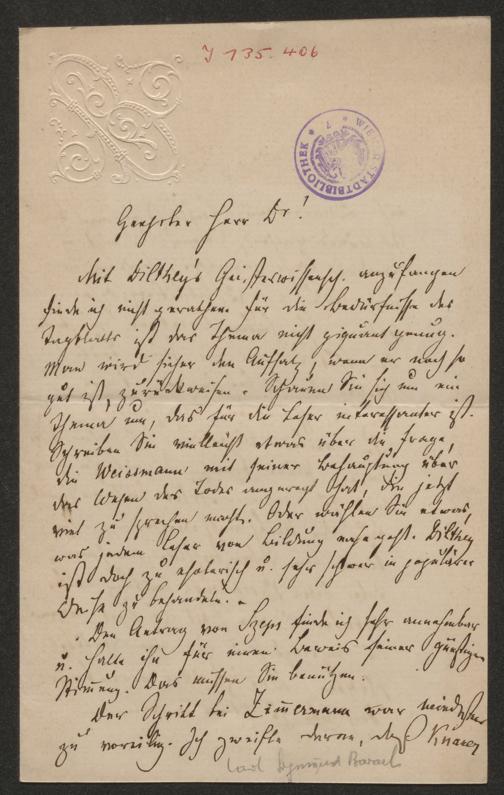 J 135.406
WIENER STADTBIBLIOTHEK
Geehrter Herr Dr!
Mit Dilthey's Geisteswissensch. anzufangen
finde ich nicht gerathen. Für die Bedürfnisse des
Tagblatts ist das Thema nicht piquant genug.
Man wird sicher den Aufsatz, wenn er noch so
gut ist, zurückweisen. Schauen Sie sich um ein
Thema um, das für die Leser interessanter ist.
Schreiben Sie vielleicht etwas über die Frage,
die Weismann mit seiner Behauptung über
das Wesen des Todes angeregt hat, die jetzt
viel zu sprechen macht. Oder wählen Sie etwas,
was jedem Leser von Bildung nahe geht. Dilthey
ist doch zu esoterisch u. sehr schwer in populärer
Weise zu behandeln. -
Den Antrag von Szeps finde ich sehr annehmbar
u. halte ihn für einen Beweis seiner günstigen
Stimmung. Das müssen Sie benützen.
Der Schritt bei Zimmermann war mindestens
zu voreilig. Ich zweifle daran, daß
Carl Sigmund Barach